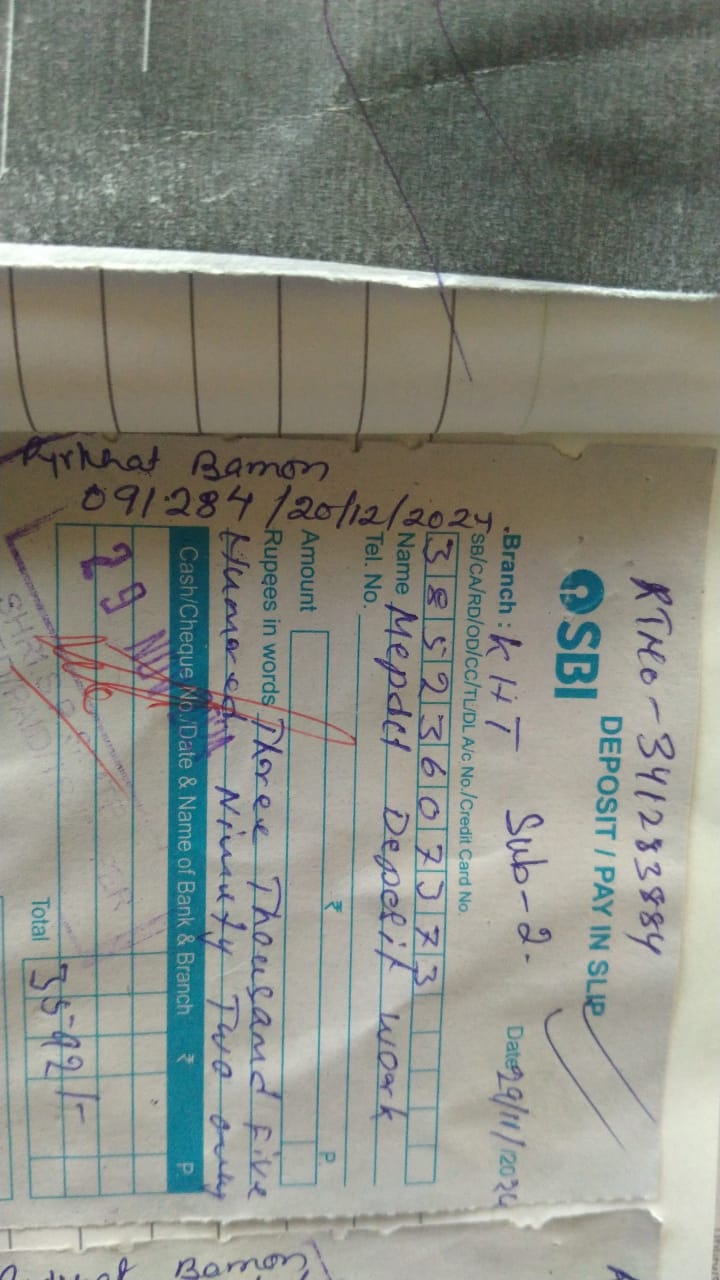 RTNo-341283884
SBI DEPOSIT / PAY IN SLIP
Branch : KHT Sub-2. Date 29/11/2024
SB/CA/RD/OD/CC/TL/DL A/c No./Credit Card No.
38523607373
Name Mepdcl Deposit work
Tel. No.
Amount ₹ P.
Rupees in words Three Thousand Five
Hundred Ninety Two only
Cash/Cheque No./Date & Name of Bank & Branch ₹ P.
29 NOV
SHRI S.
Total 3592/-
091284/20/12/2024
Pyrkhat Bamon
Bamon